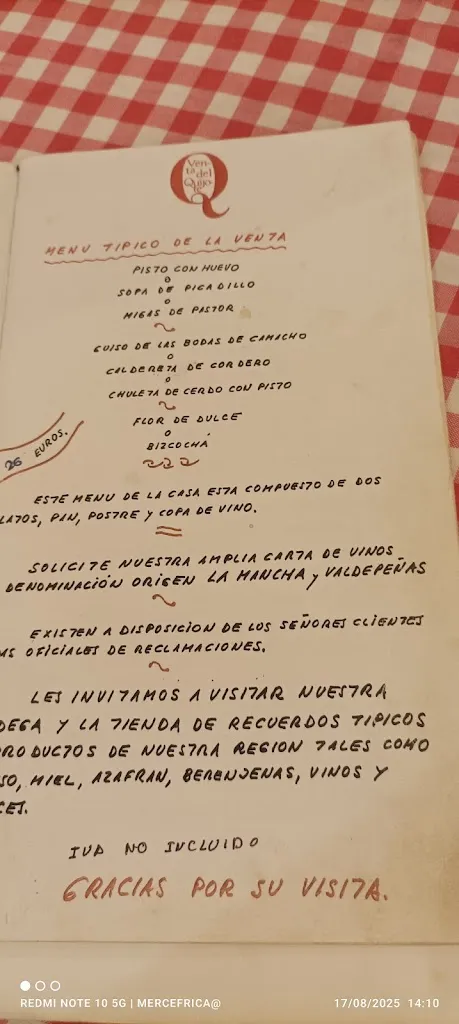 Ven-
ta del
Quijo-
te
MENU TIPICO DE LA VENTA
PISTO CON HUEVO
o
SOPA DE PICADILLO
o
MIGAS DE PASTOR
GUISO DE LAS BODAS DE CAMACHO
o
CALDERETA DE CORDERO
o
CHULETA DE CERDO CON PISTO
FLOR DE DULCE
o
BIZCOCHÁ
26 EUROS.
ESTE MENU DE LA CASA ESTA COMPUESTO DE DOS
LATOS, PAN, POSTRE Y COPA DE VINO.
SOLICITE NUESTRA AMPLIA CARTA DE VINOS
DENOMINACIÓN ORIGEN LA MANCHA Y VALDEPEÑAS
EXISTEN A DISPOSICION DE LOS SEÑORES CLIENTES
AS OFICIALES DE RECLAMACIONES.
LES INVITAMOS A VISITAR NUESTRA
DEGA Y LA TIENDA DE RECUERDOS TIPICOS
PRODUCTOS DE NUESTRA REGION TALES COMO
SO, MIEL, AZAFRAN, BERENJENAS, VINOS Y
CES.
IVA NO INCLUIDO
GRACIAS POR SU VISITA.
REDMI NOTE 10 5G | MERCEFRICA@
17/08/2025 14:10